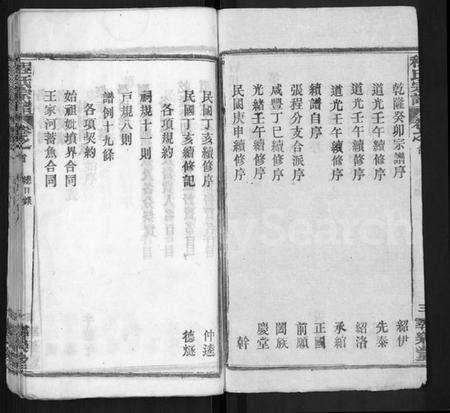 程氏宗譜
乾隆癸卯宗譜序 紹伊
道光壬午續修序 先秦
道光壬午續修序 紹洛
道光壬午續修序 承綰
續譜自序 正國
張程分支合派序 前願
咸豐丁巳續修序 闔族
光緒壬午續修序 慶堂
民國庚申續修序 幹
民國丁亥續修序 仲達
民國丁亥續修記 德
各項規約
祠規十二則
戶規八則
譜例十九條
各項契約
始祖妣墳界合同
王家河蓄魚合同
程氏宗譜
首
總目錄